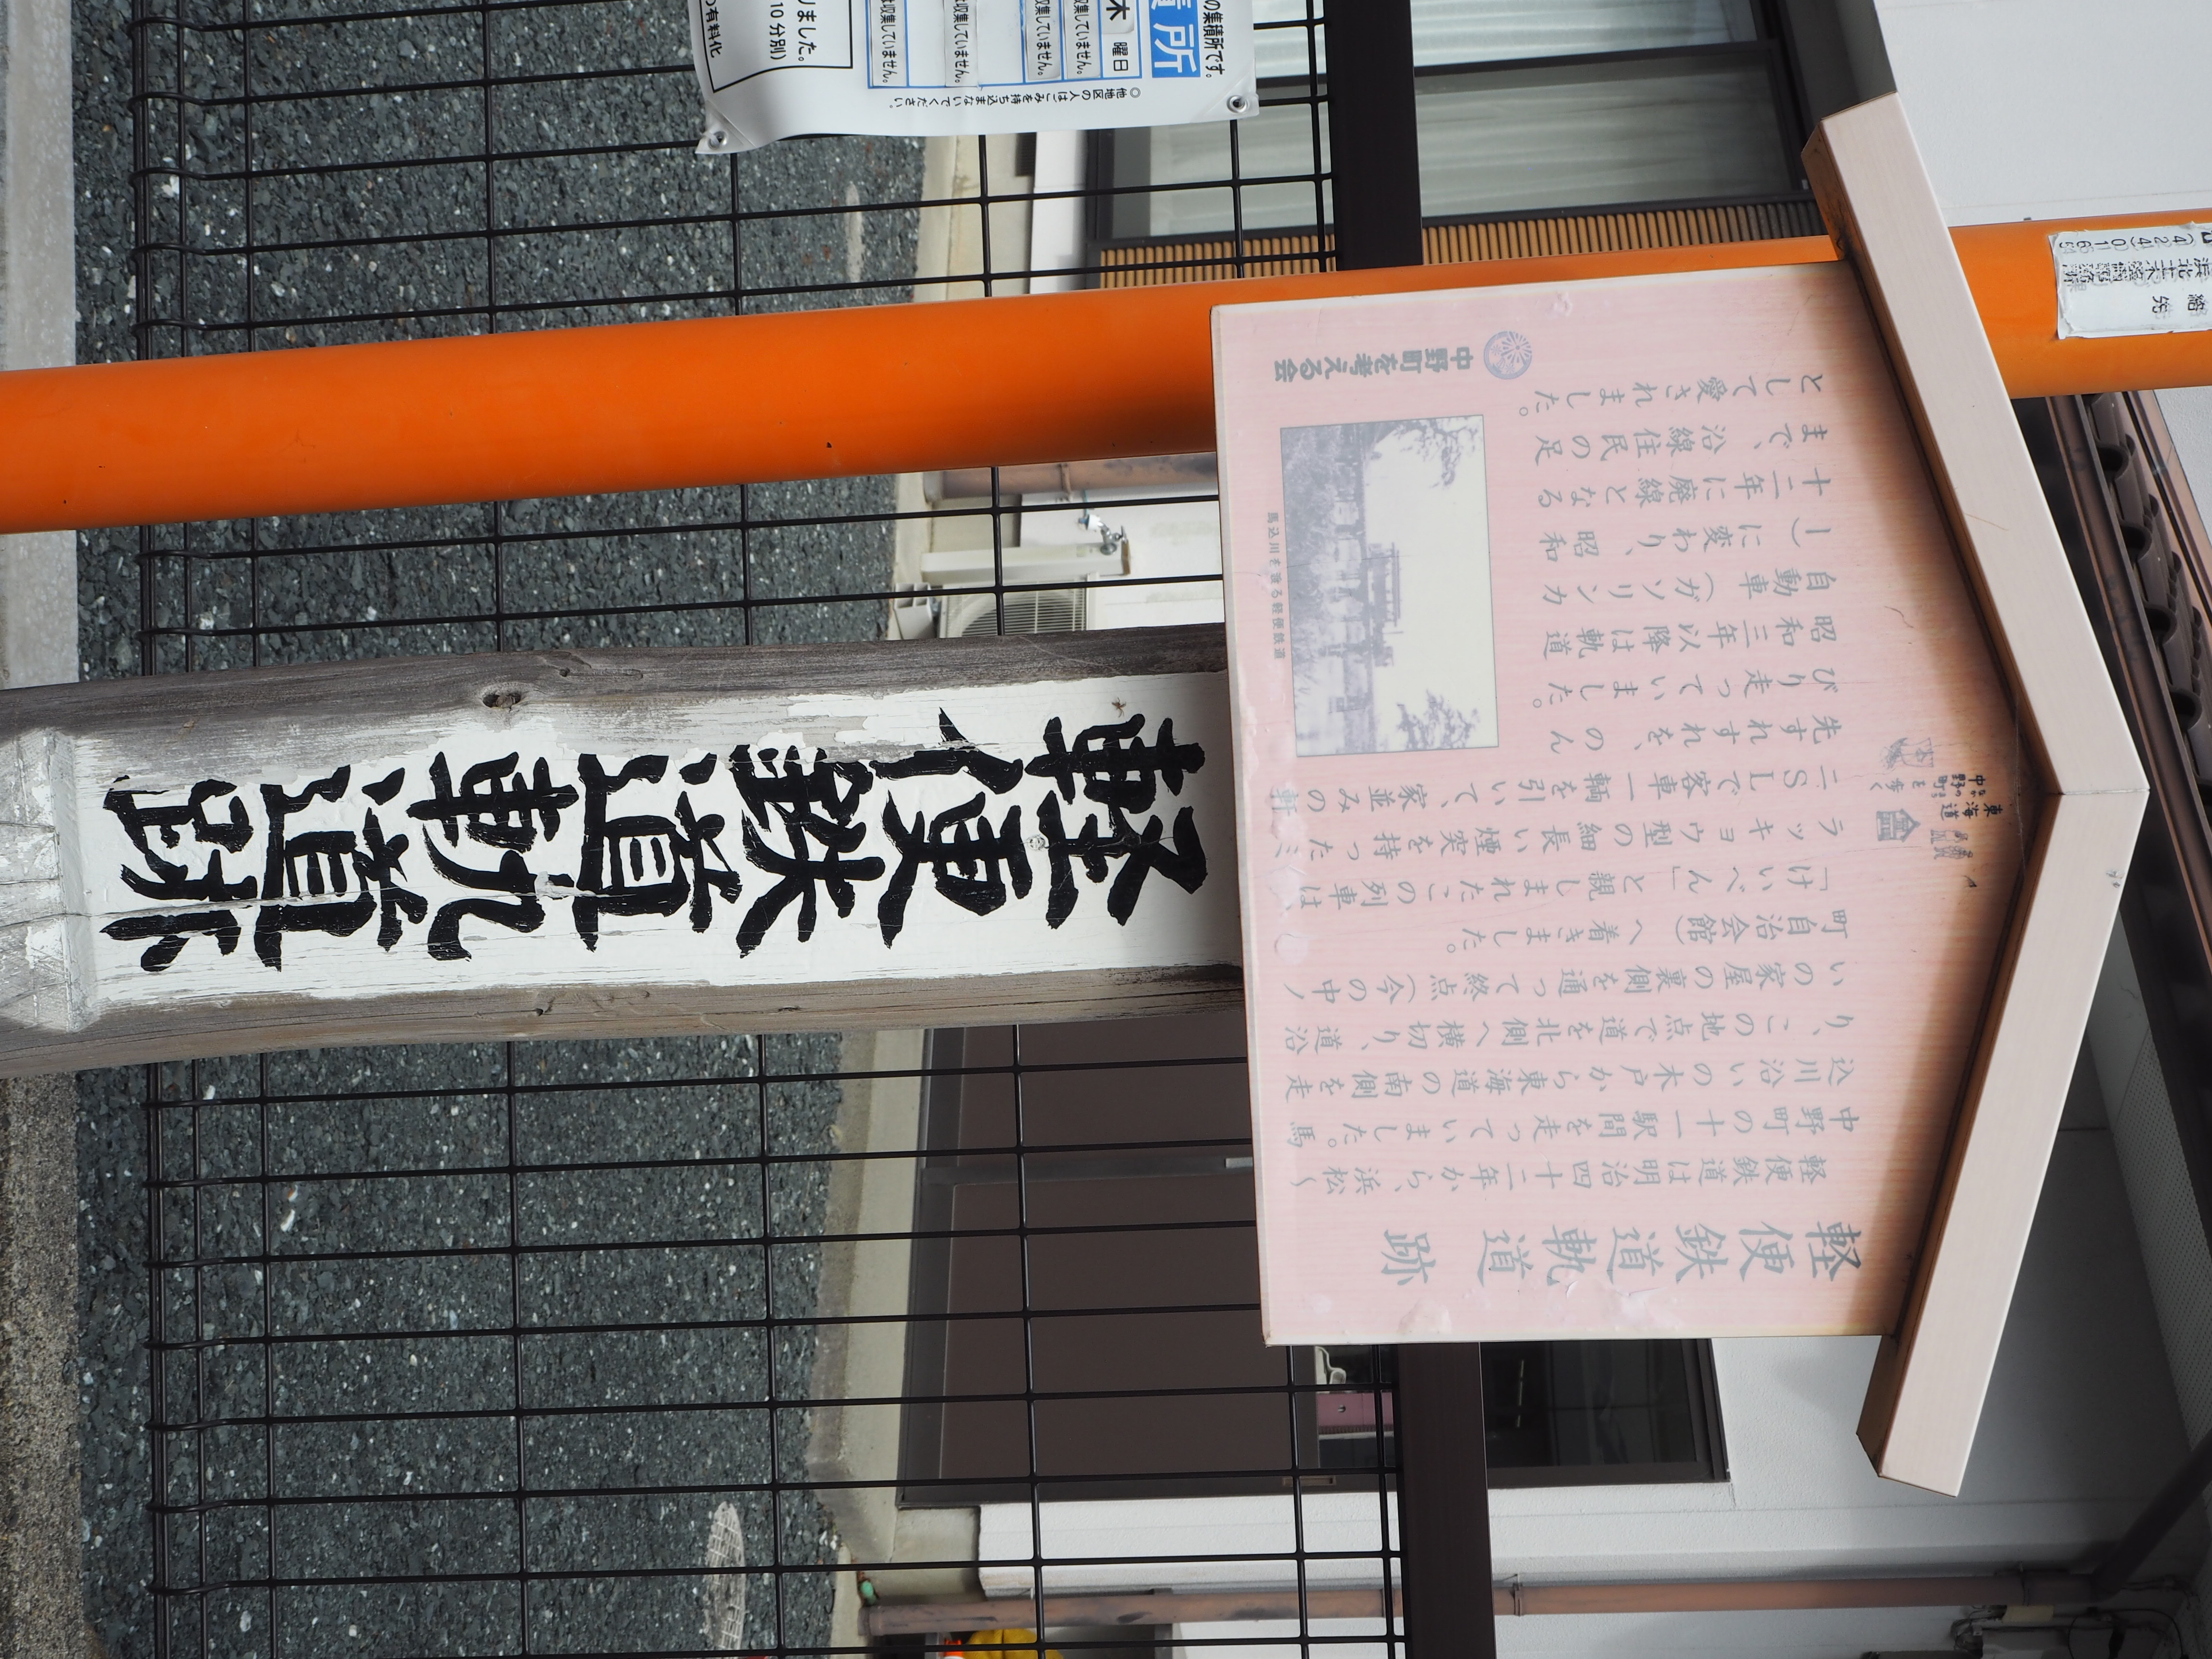 東海道
軽便鉄道軌道跡
軽便鉄道は明治四十二年から、浜松〜
中野町の十一駅間を走っていました。馬
込川沿いの木戸から東海道の南側を走
り、この地点で道を北側へ横切り、道沿
いの家屋の裏側を通って終点(今の中ノ
町自治会館)へ着きました。
「けいべん」と親しまれたこの列車は、
ラッキョウ型の細長い煙突を持ったミ
ニSLで客車一輌を引いて、家並みの軒
先すれすれを、のん
びり走っていました。
昭和三年以降は軌道
自動車(ガソリンカ
ー)に変わり、昭和
十二年に廃線となる
まで、沿線住民の足
として愛されました。
馬込川を渡る軽便鉄道
中野町を考える会
軽便鉄道軌道跡
の集積所です。
所
木 曜日
収集していません。
収集していません。
は収集していません。
は収集していません。
りました。
10分別)
の有料化
◎他地区の人はごみを持ち込まないでください。
絡先
(424)0165